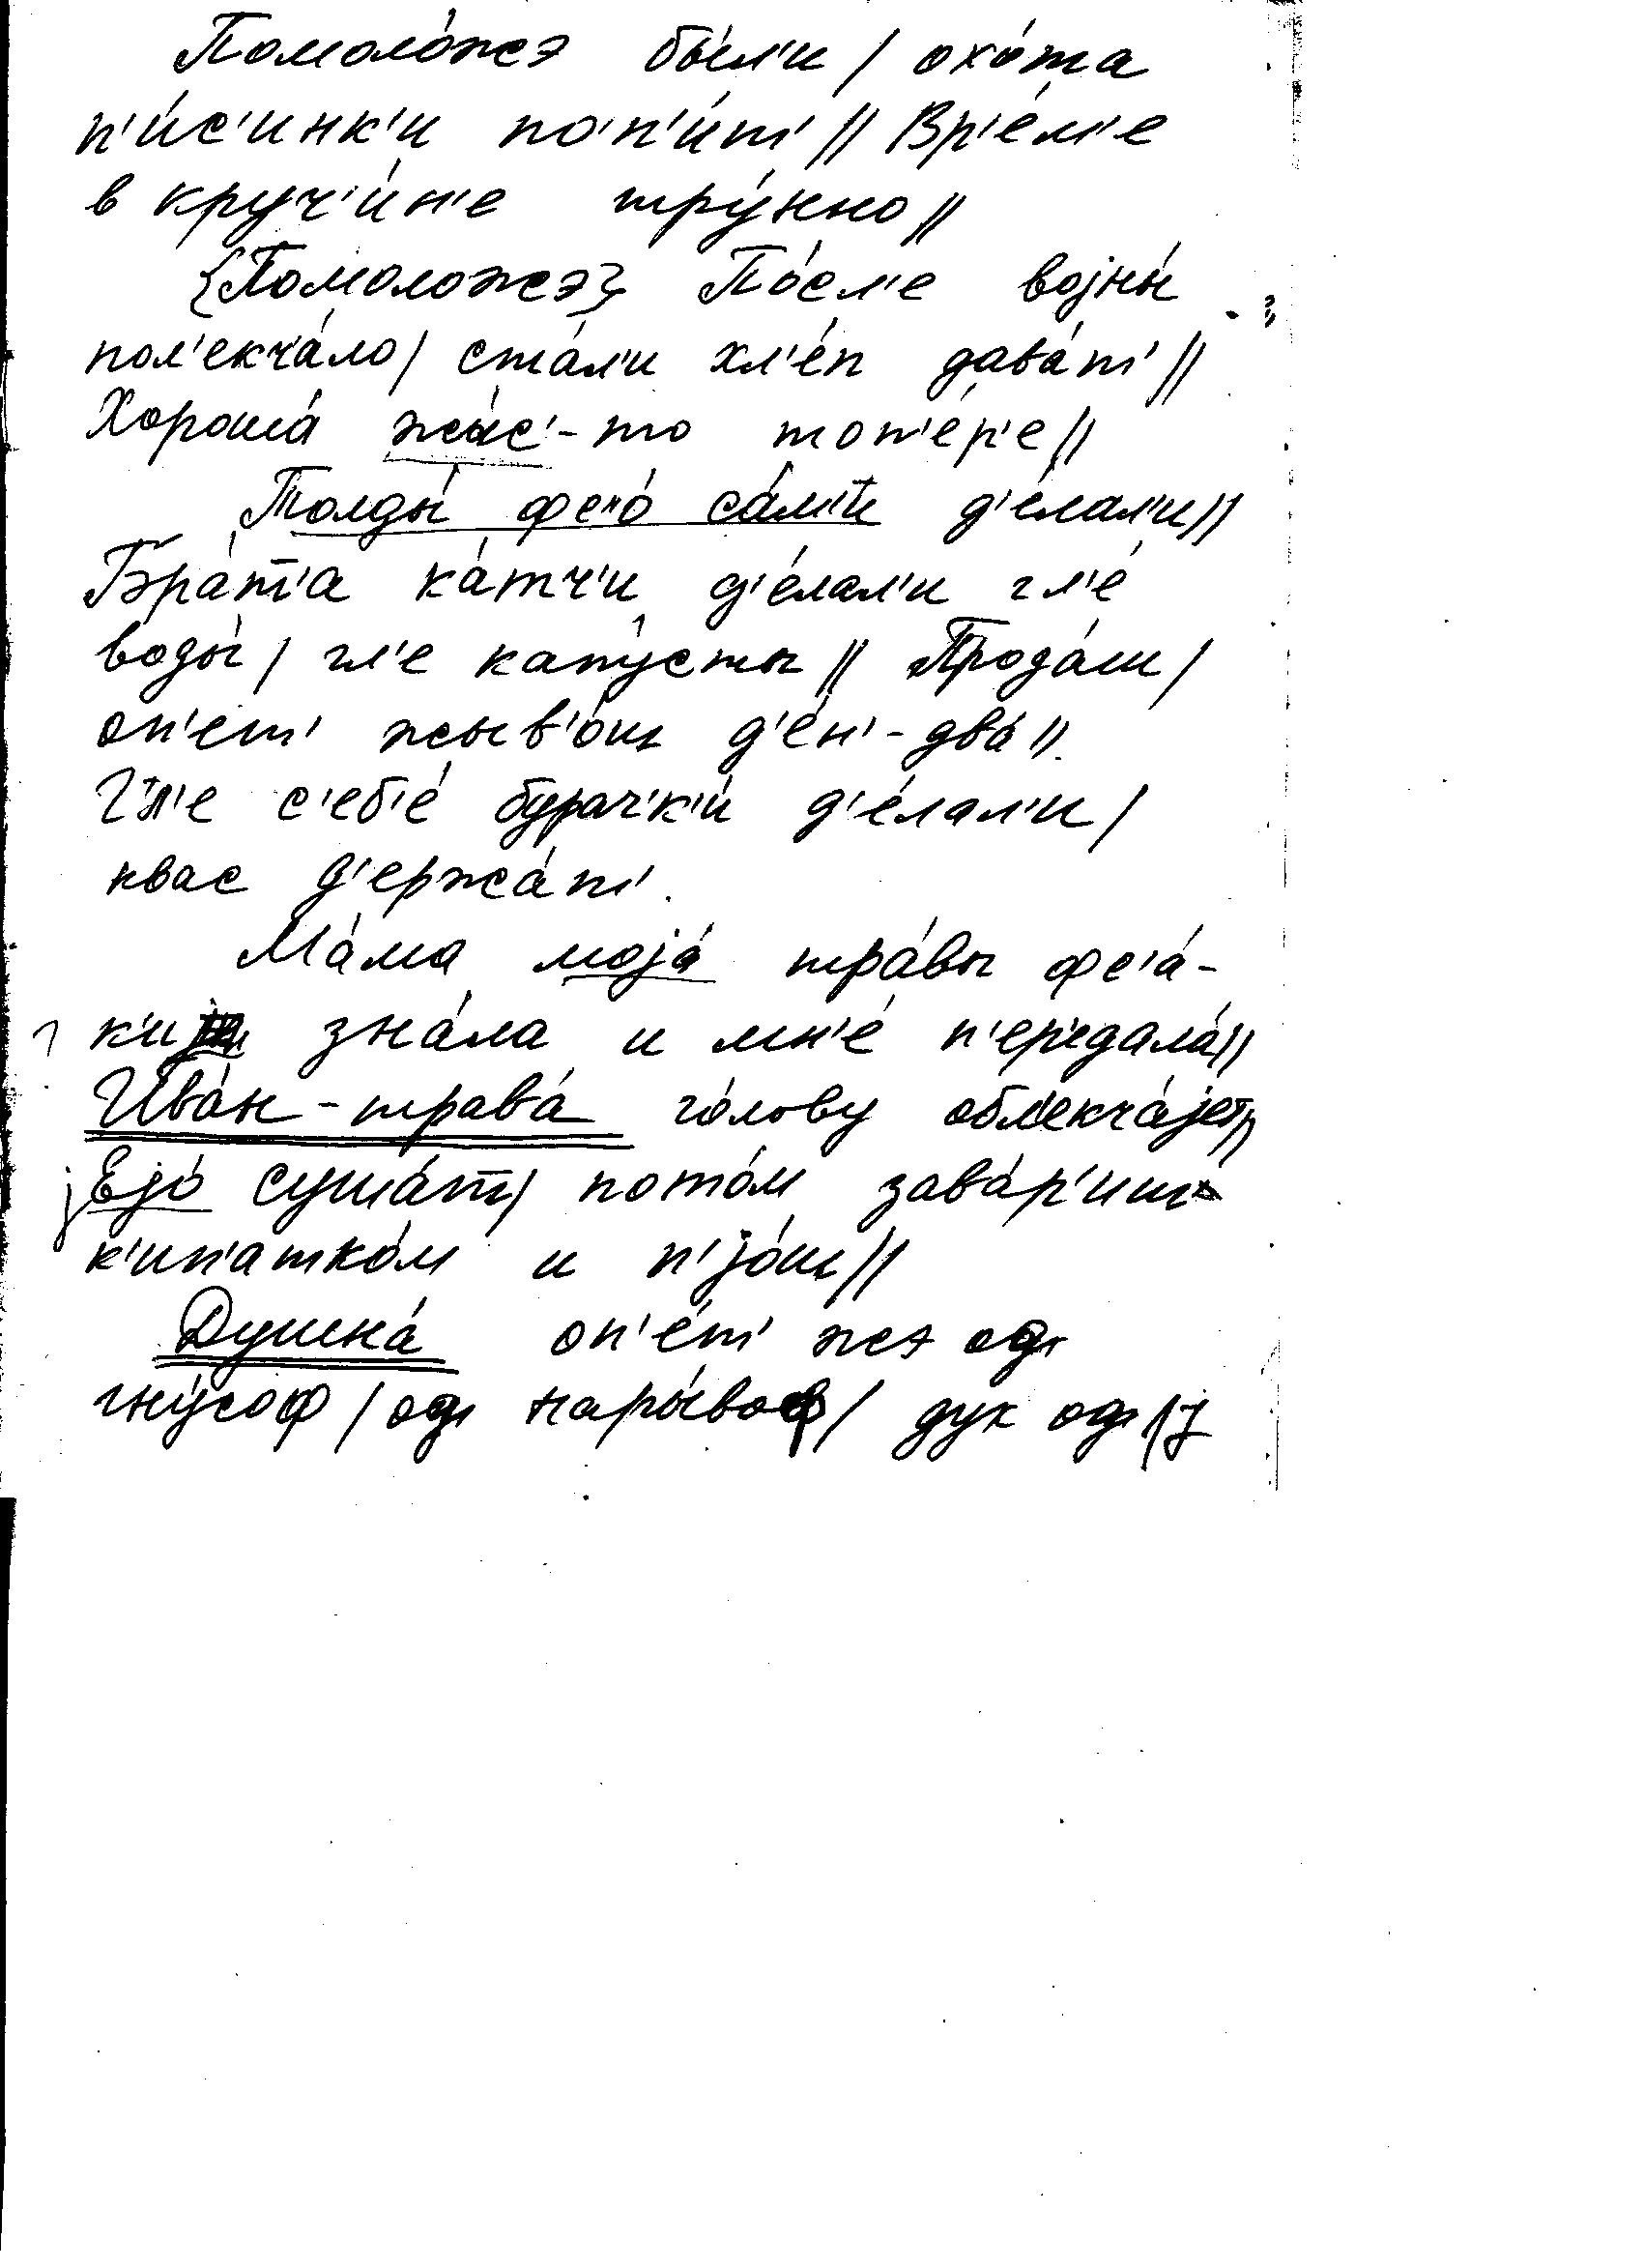 Помоло́жэ бы́л'и / охо́та
п'и́с'инк'и поп'и́т' // Вр'е́м'е
в круч'и́н'е тру́нно //
{Помоложэ} По́сл'е воjны́
пол'екча́ло / ста́л'и хл'е́п дава́т' //
Хороша́ жы́с'-то топ'е́р'е //
Толды́ фс'о́ са́м'и д'е́лал'и //
Бра́т'а ка́тч'и д'е́лал'и гл'е́
воды́ / гл'е капу́сты // Прода́ш /
оп'ет' жыв'о́ш д'е́н'-два́ //
Гл'е с'еб'е́ бурач'к'и́ д'е́лал'и /
квас д'ержа́т'.
Ма́ма моjа́ тра́вы фс'а́-
к'и зна́ла и мн'е́ п'ер'едала́ //
Ива́н-трава́ го́лову обл'екча́jет //
jЕjо́ суша́т / пото́м зава́р'иш
к'ип'атко́м и п'jо́ш //
Душка́ оп'е́т' жэ од
гну́соф / од нары́воф / дух од //